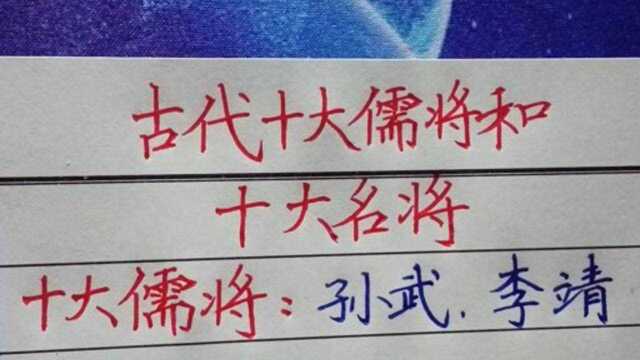 古代十大儒将和
十大名将
十大儒将：孙武.李靖